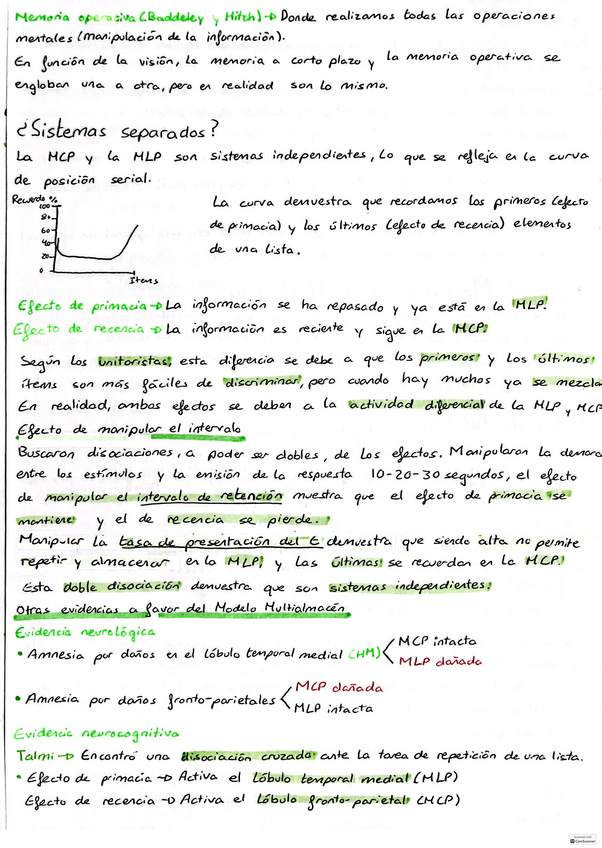 Memoria operativa (Baddeley y Hitch) → Donde realizamos todas las operaciones
mentales (manipulación de la información).
En función de la visión, la memoria a corto plazo y la memoria operativa se
engloban una a otra, pero en realidad son lo mismo.
¿Sistemas separados?
La MCP y la MLP son sistemas independientes, lo que se refleja en la curva
de posición serial.
Recuerdo %
100
80
60
40
20
0
Items
La curva demuestra que recordamos los primeros (efecto
de primacia) y los últimos (efecto de recencia) elementos
de una lista.
Efecto de primacia → La información se ha repasado y ya está en la MLP.
Efecto de recencia → La información es reciente y sigue en la MCP.
Según los unitaristas, esta diferencia se debe a que los primeros y los últimos
ítems son más fáciles de discriminar, pero cuando hay muchos ya se mezcla
En realidad, ambos efectos se deben a la actividad diferencial de la MLP y MCP
Efecto de manipular el intervalo
Buscaron disociaciones, a poder ser dobles, de los efectos. Manipularon la demora
entre los estímulos y la emisión de la respuesta 10-20-30 segundos, el efecto
de manipular el intervalo de retención muestra que el efecto de primacia se
mantiene y el de recencia se pierde.
Manipular la tasa de presentación del E demuestra que siendo alta no permite
repetir y almacenar en la MLP, y las últimas se recuerdan en la MCP.
Esta doble disociación demuestra que son sistemas independientes.
Otras evidencias a favor del Modelo Multialmacén
Evidencia neurológica
• Amnesia por daños en el lóbulo temporal medial (HM)
MCP intacta
MLP dañada
• Amnesia por daños fronto-parietales
MCP dañada
MLP intacta
Evidencia neurocognitiva
Talmi → Encontró una disociación cruzada ante la tarea de repetición de una lista.
• Efecto de primacia → Activa el lóbulo temporal medial (MLP)
Efecto de recencia → Activa el lóbulo fronto-parietal (MCP)
Scanned with
CamScanner